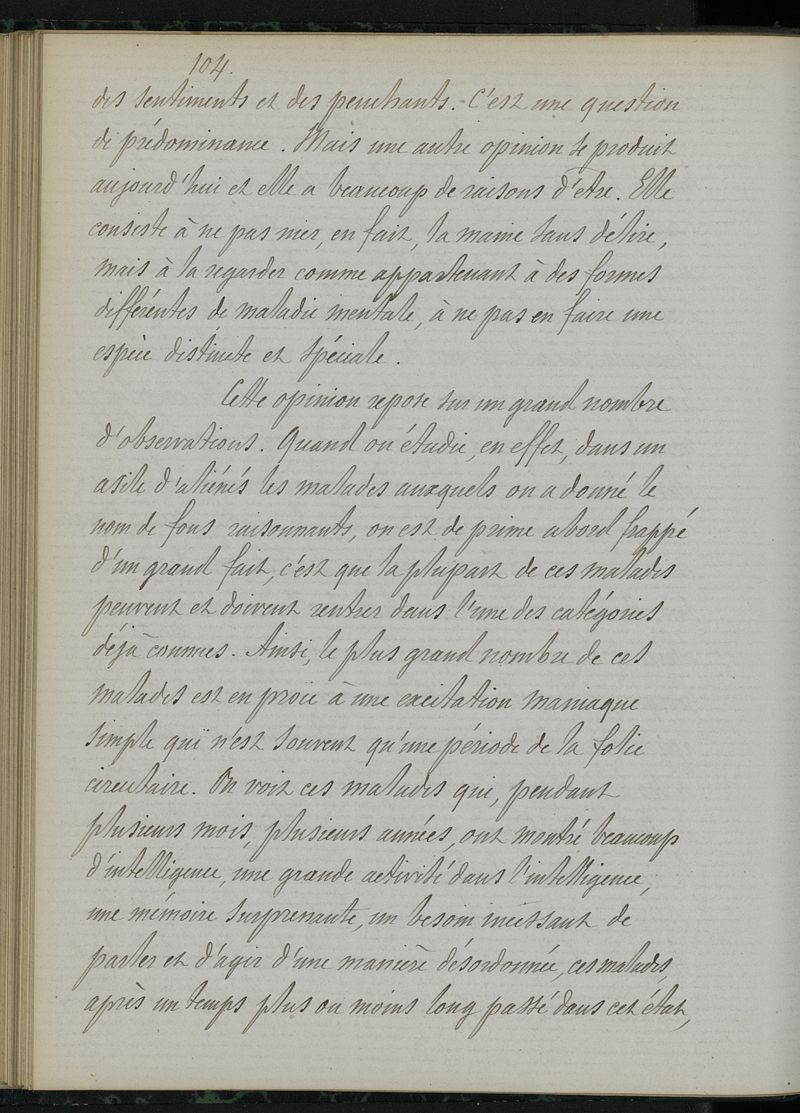 104.
des sentiments et des penchants. - C'est une question
de prédominance. Mais une autre opinion se produit
aujourd'hui et elle a beaucoup de raisons d'être. Elle
consiste à ne pas nier, en fait, la manie sans délire,
mais à la regarder comme appartenant à des formes
différentes de maladie mentale, à ne pas en faire une
espèce distincte et spéciale.
Cette opinion repose sur un grand nombre
d'observations. Quand on étudie, en effet, dans un
asile d'aliénés les malades auxquels on a donné le
nom de fous raisonnants, on est de prime abord frappé
d'un grand fait, c'est que la plupart de ces malades
peuvent et doivent rentrer dans l'une des catégories
déjà connues. Ainsi, le plus grand nombre de ces
malades est en proie à une excitation maniaque
simple qui n'est souvent qu'une période de la folie
circulaire. On voit ces malades qui, pendant
plusieurs mois, plusieurs années, ont montré beaucoup
d'intelligence, une grande activité dans l'intelligence,
une mémoire surprenante, un besoin incessant de
parler et d'agir d'une manière désordonnée, ces malades,
après un temps plus ou moins long passé dans cet état,